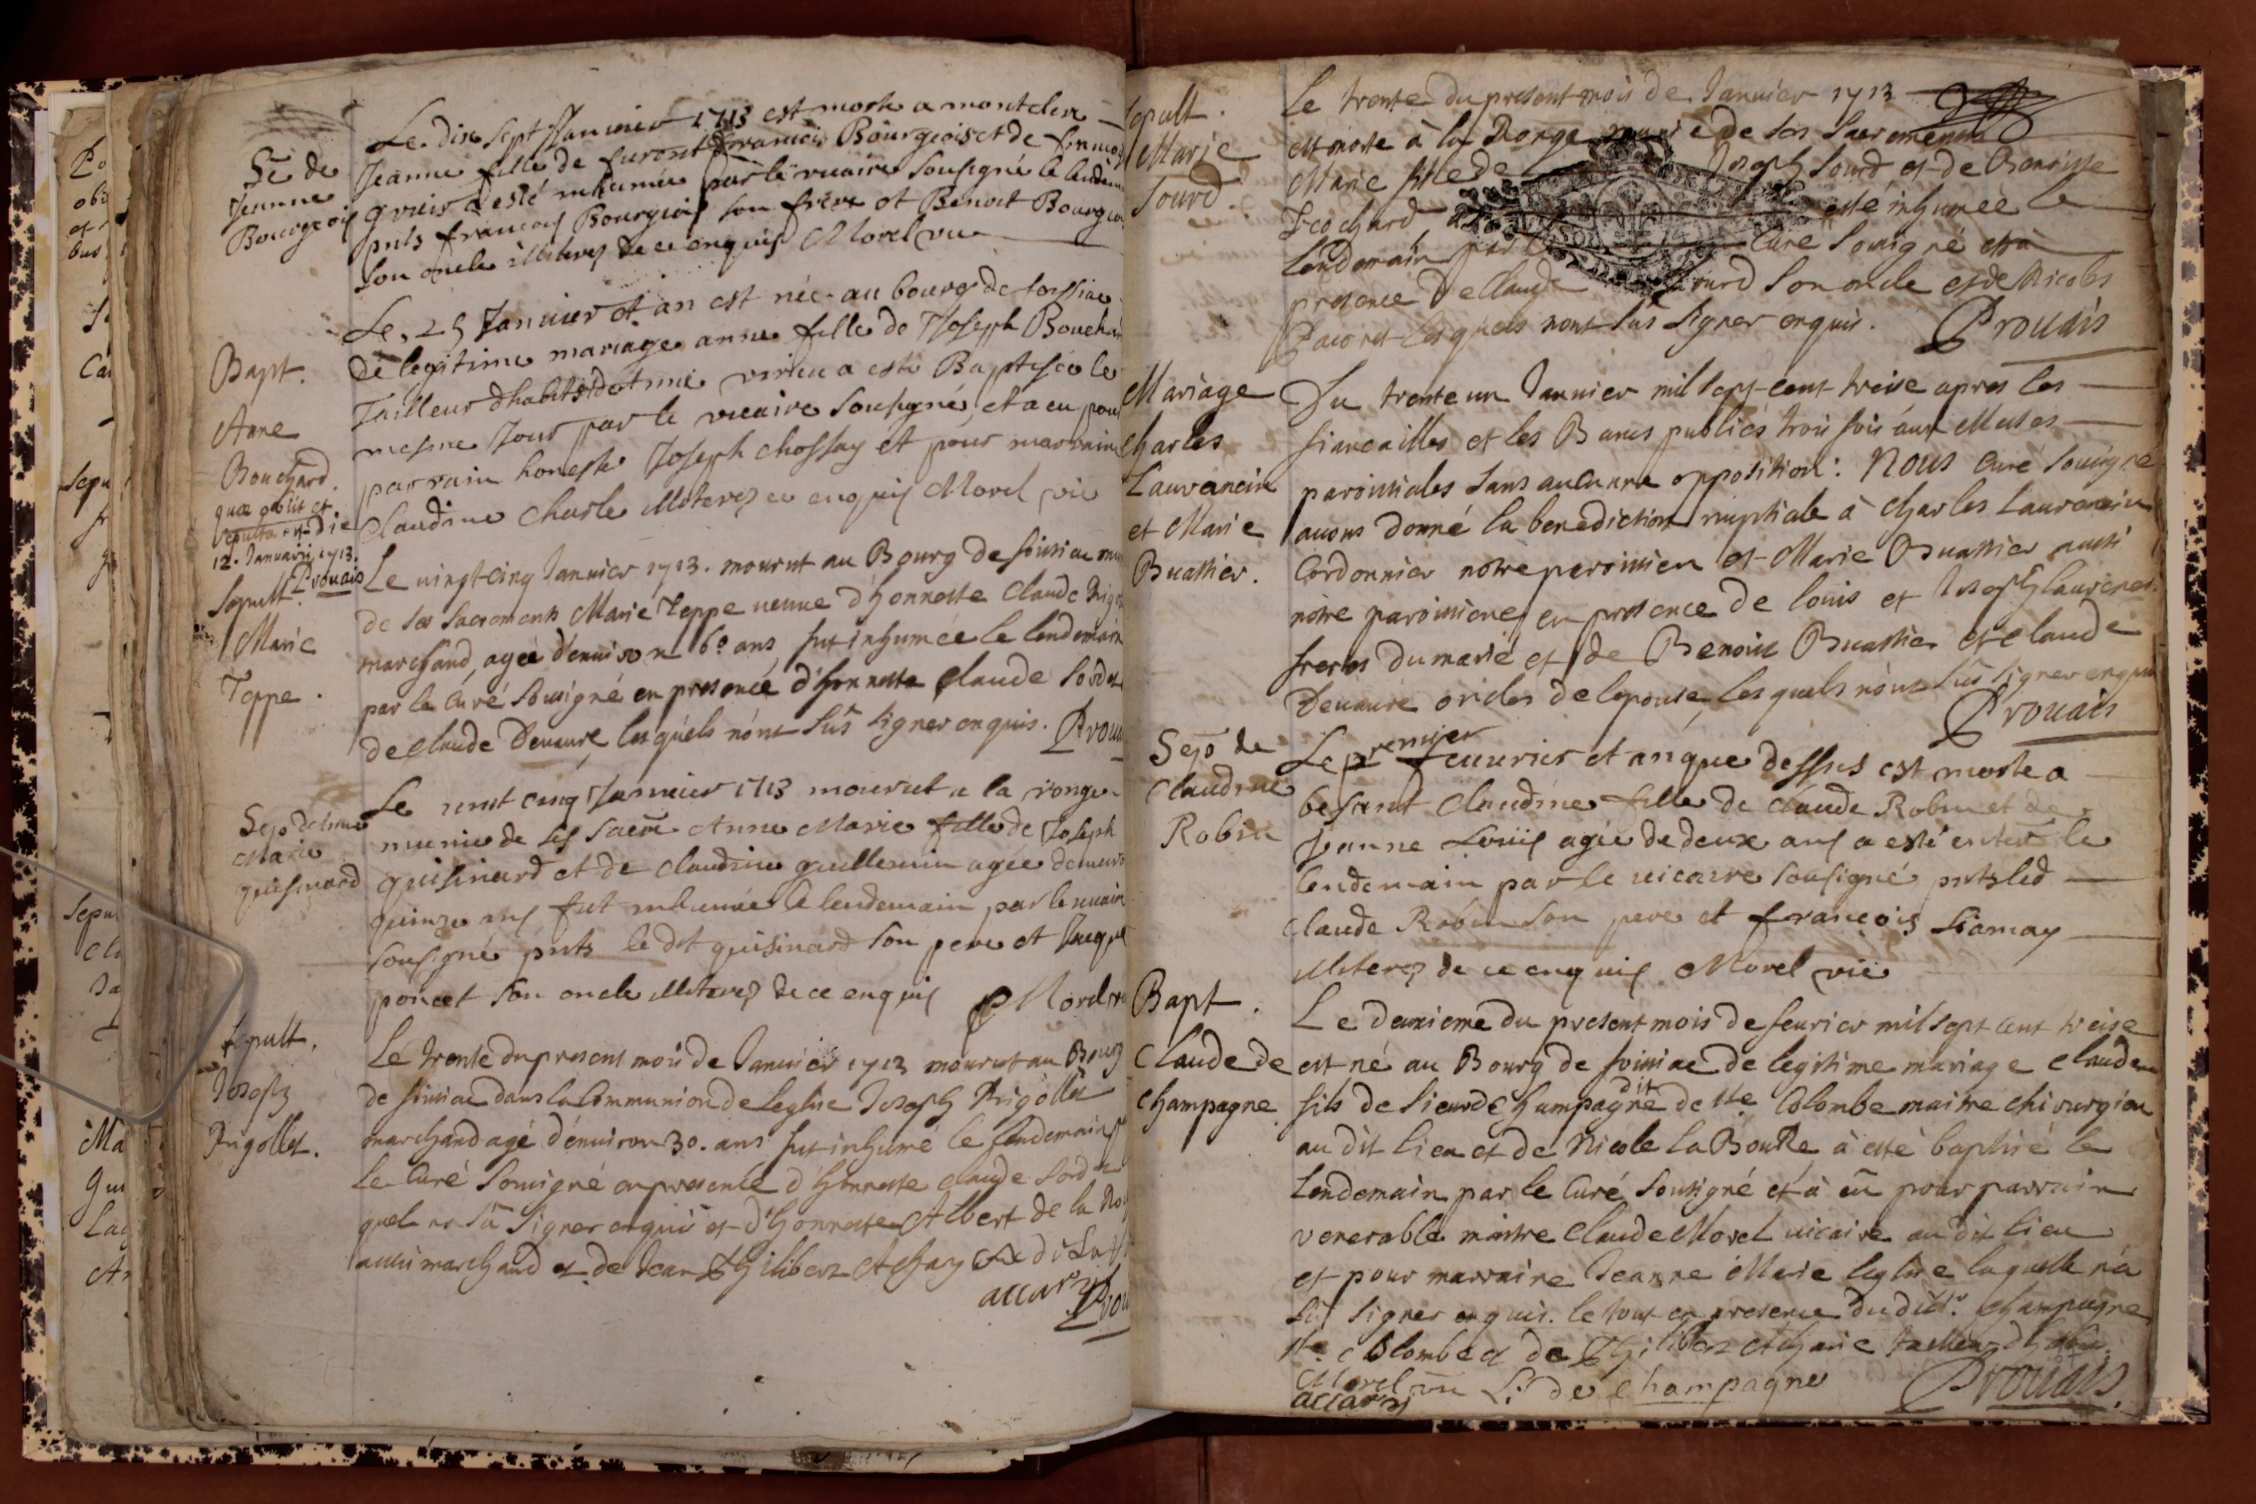 Se de
Jeanne
Bourgeois
Le dix sept Januier 1713 est morte a montelier
Jeanne fille de furent francois Bourgeois et de
a esté inhumée par le vicaire sousigné le
pnts francois Bourgeois son frere et Benoit
son oncle illiterez de ce enquis Morel vic
Bapt.
Anne
Bouchard.
quæ obiit et
sepulta die
12. Januarii 1713.
Prouais
Le 25 Januier et an est née au bourg de
de legitime mariage anne fille de Joseph
Tailleur dhabits detnie a esté Baptisée le
mesme Jour par le vicaire sousigné, et a eu pour
parrain honeste Joseph chossay et pour marraine
Claudine charle illiterez ce enquis Morel vic
Sepult.
Marie
Teppe.
Le vingt cinq Januier 1713. mourut au Bourg de
de ses sacrements Marie Teppe veuue d'honneste Claude
marchand, agée d'enuiron 60 ans, fut inhumée le lendemain
par le Curé sousigné en presence d'honneste Claude
de Claude Deuaure lesquels nont sus signer enquis.
Sepo de Anne
Marie
guisinard
Le vint cinq Januier 1713 mourut a la ronge
munie de ses sacre Anne Marie fille de Joseph
guisinard et de claudine guillemin agée
quinze ans fut inhumée le lendemain par le vicaire
sousigné pnts le dt guisinard son pere et
poncet son oncle illiterez de ce enquis Morel
Sepult.
Joseph
Rigollet.
Le trente du present mois de Januier 1713 mourut au Bourg
de dans la Communion de leglise Joseph Rigollet
marchand agé d'enuiron 30. ans fut inhumé le lendemain
le Curé sousigné en presence d'honneste Claude
quel na sû signer enquis et d'honneste Albert de la
aussi marchand et de Jean
accarry
Sepult.
Marie
Sourd.
Le trente du present mois de Januier 1713
est morte à la Ronge munie de ses Sacrements
Marie fille de Joseph Sourd et de Benoiste
esté inhumée le
lendemain par le Curé Sousigné et à
presence de Claude Sourd son oncle et de Nicolas
lesquels nont sus signer enquis. Prouais
Mariage
Charles
Laurencin
et Marie
Buathier.
Du trente un Januier mil sept cent treise apres les
fiancailles et les Bancs publiés trois fois aux Messes
paroissiales sans aucunne opposition: Nous Curé sousigné
auons donné la benediction nuptiale à Charles Laurencin
Cordonnier notre paroissien et Marie Buathier aussi
notre paroissiene, en presence de louis et Joseph
freres du marié et de Benoist Buathier et Claude
Deuaure oncles de lepouse, lesquels nont sus signer enquis
Prouais
Sepo de
Claudine
Robin
Le premier feuurier et an que dessus est morte a
besent Claudine fille de claude Robin et de
Jeanne Louis agée de deux ans a esté enter le
lendemain par le vicaire sousigné pnts led
claude Robin son pere et françois
illiterez de ce enquis Morel vic
Bapt.
Claude de
Champagne.
Le deuxieme du present mois de feurier mil sept cent treise
est né au Bourg de de legitime mariage Claude
fils de Sieur de Champagne dit de Ste Colombe maitre chirurgien
au dit lieu et de Nicole la Boulle à esté baptisé le
lendemain par le Curé sousigné et à eu pour parrain
venerable maitre Claude Morel vicaire au dit lieu
et pour marraine Jeanne Marie leglise laquelle n'a
sû signer enquis. le tout en presence du dit Sr Champagne
Ste Colombe et de
Morel vic de Champagne Prouais.
accarry